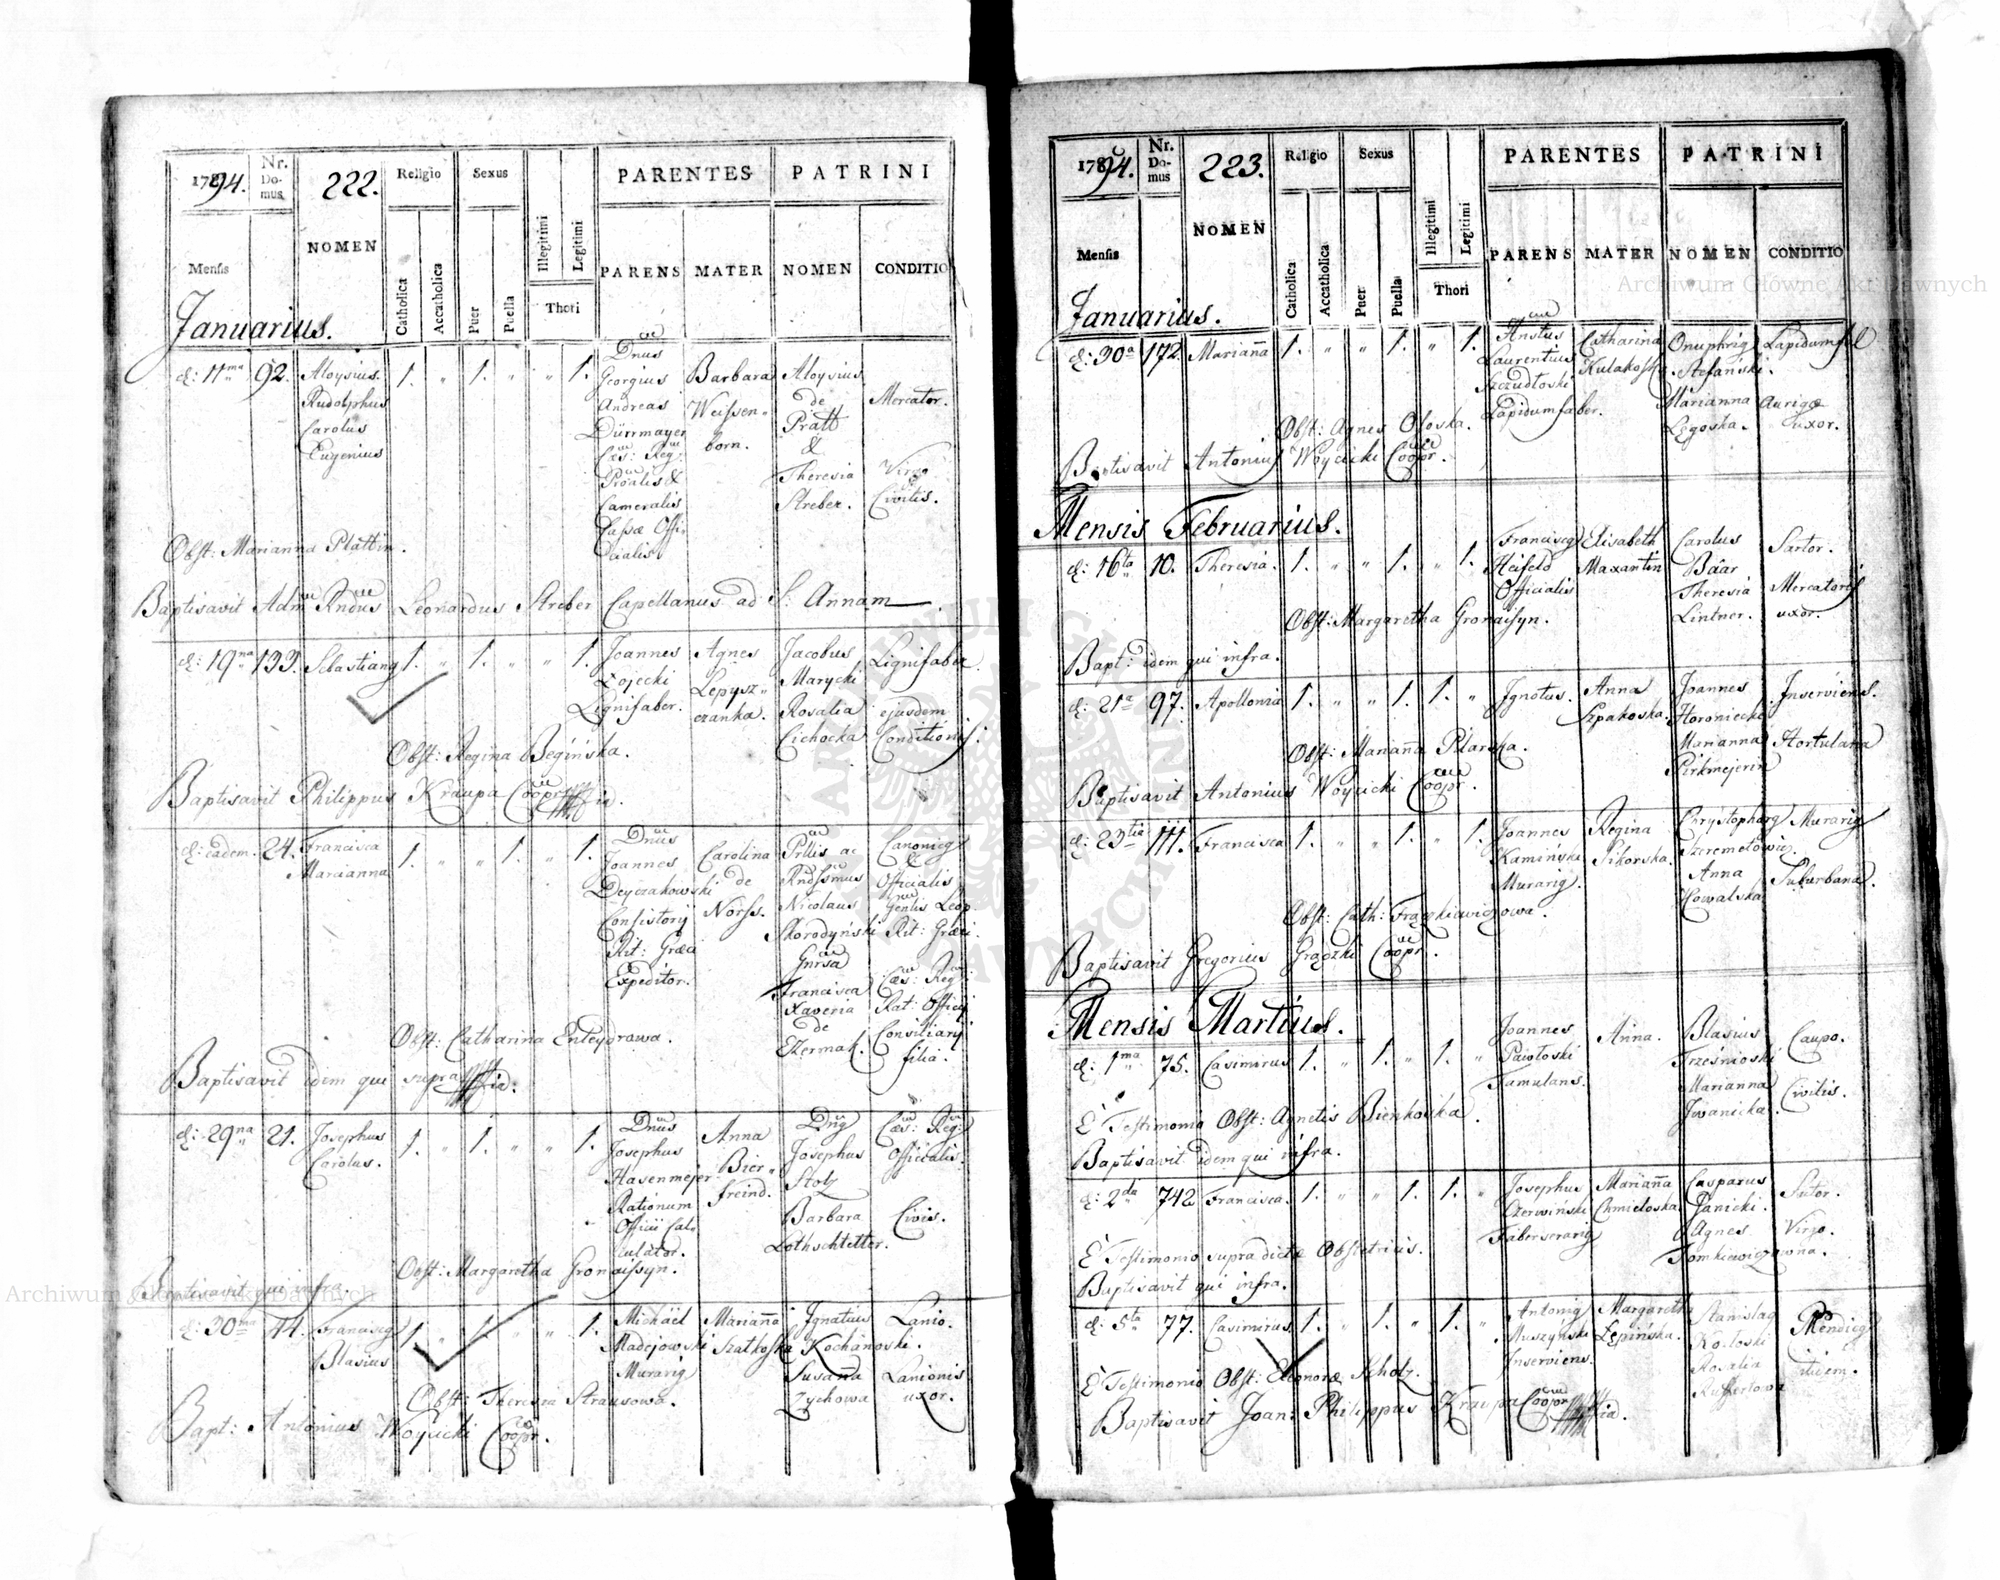 1794.
Nr. Domus
222.
Religio
Sexus
PARENTES
PATRINI
Mensis
NOMEN
Catholica
Accatholica
Puer
Puella
Illegitimi
Legitimi
Thori
PARENS
MATER
NOMEN
CONDITIO
Januarius.
d: 11ma 92. Aloysius Rudolphus Carolus Eugenius 1. " 1. " " 1.
Dnus Georgius Andreas Dürrmayer Cæs: Reg:
Cameralis Cassæ Officialis
Barbara Weissenborn.
Aloysius de Pratt & Theresia Streber.
Mercator.
Virgo Civilis.
Obst: Marianna Plattin.
Baptisavit Adm Rndus Leonardus Streber Capellanus ad S: Annam
d: 19na 133. Sebastiang 1. " 1. " " 1.
Joannes Łojecki Lignifaber.
Agnes Lepyszczanka.
Jacobus Marycki
Rosalia Cichocka
Lignifaber.
ejusdem Conditionis.
Obst: Regina Begińska.
Baptisavit Philippus Kraupa Coopr
d: eadem. 24. Francisca Marianna 1. " " 1. " 1.
Dnus Joannes Deyczakowski Consistorij Rit: Græci Expeditor.
Carolina de Nörss.
Prllis ac Rndssmus Nicolaus Skorodyński
Gnrsa Francisca Xaveria de
Canonicg & Officialis Gnlis Leop Rit: Græci.
Cæs: Reg: Rat: Officij Consiliarij filia.
Obst: Catharina Enleydrowa.
Baptisavit idem qui supra
d: 29na 21. Josephus Carolus. 1. " 1. " " 1.
Dnus Josephus Hasenmejer Rationum Officii Calculator.
Anna Bierfreind.
Dng Josephus Stolz
Barbara Lothschtetter.
Cæs: Reg: Officialis.
Civis.
Obst: Margaretha Gronaissyn.
Baptisavit qui infra.
d: 30ma 44. Franciscg Blasius 1. " 1. " " 1.
Michael Madejowski Murarig
Marianna Szatkoska
Ignatius Kochanoski.
Susanna Zychowa
Lanio.
Lanionis uxor.
Obst: Theresia Strausowa.
Bapt: Antonius Woycicki Coopr.
1794.
Nr. Domus
223.
Religio
Sexus
PARENTES
PATRINI
Mensis
NOMEN
Catholica
Accatholica
Puer
Puella
Illegitimi
Legitimi
Thori
PARENS
MATER
NOMEN
CONDITIO
Januarius.
d: 30a 172. Marianna 1. " " 1. " 1.
Laurentius Szczudłoski Lapidumfaber.
Catharina
Onuphrig Stefański.
Marianna Łęgoska.
Aurigæ uxor.
Obst: Agnes Ososka.
Baptisavit Antonius Woycicki Coopr.
Mensis Februarius.
d: 16ta 10. Theresia. 1. " " 1. " 1.
Franciscg Heifeld Officialis
Elisabeth Maxantin
Carolus Báar
Theresia Lintner.
Sartor.
Mercatoris uxor.
Obst: Margaretha Gronaisyn.
Bapt: idem qui infra.
d: 21a 97. Apollonia 1. " " 1. 1. "
Ignotus.
Anna Szpakoska.
Joannes Horoniecki
Marianna Pirkmejerin
Inserviens.
Hortulana
Obst: Marianna Pilarska.
Baptisavit Antonius Woycicki Coopr.
d: 23tia 111. Francisca 1. " " 1. " 1.
Joannes Kamiński Murarig.
Regina Sikorska.
Chrystopharg Szeremetowicz.
Anna Kowalska
Murarig
Suburbana.
Obst: Cath: Frączkiewiczowa.
Baptisavit Gregorius Grądzki Coopr.
Mensis Martius.
d: 1ma 75. Casimirus 1. " 1. " 1. "
Joannes Pawłoski Famulans.
Anna.
Blasius Trześnioski
Marianna Iwanicka.
Caupo.
Civilis.
E' Testimonio Obst: Agnetis Bienkoska.
Baptisavit idem qui infra.
d: 2da 742 Francisca. 1. " " 1. 1. "
Josephus Czerwiński Faberserarig
Marianna Chmieloska.
Casparus Janicki.
Agnes Tomkiewiczowna.
Sutor.
Virgo.
E' Testimonio supra dictæ Obstetricis.
Baptisavit qui infra.
d: 5ta 77. Casimirus. 1. " 1. " 1. "
Antonig Muszyński Inserviens.
Margaretha Łepińska.
Stanislag Kozłoski
Rosalia
Mendicg
idem.
E' Testimonio Obst: Eleonoræ Scholz.
Baptisavit Joan: Philippus Kraupa Coopr
Archiwum Główne Akt Dawnych
Archiwum Główne Akt Dawnych